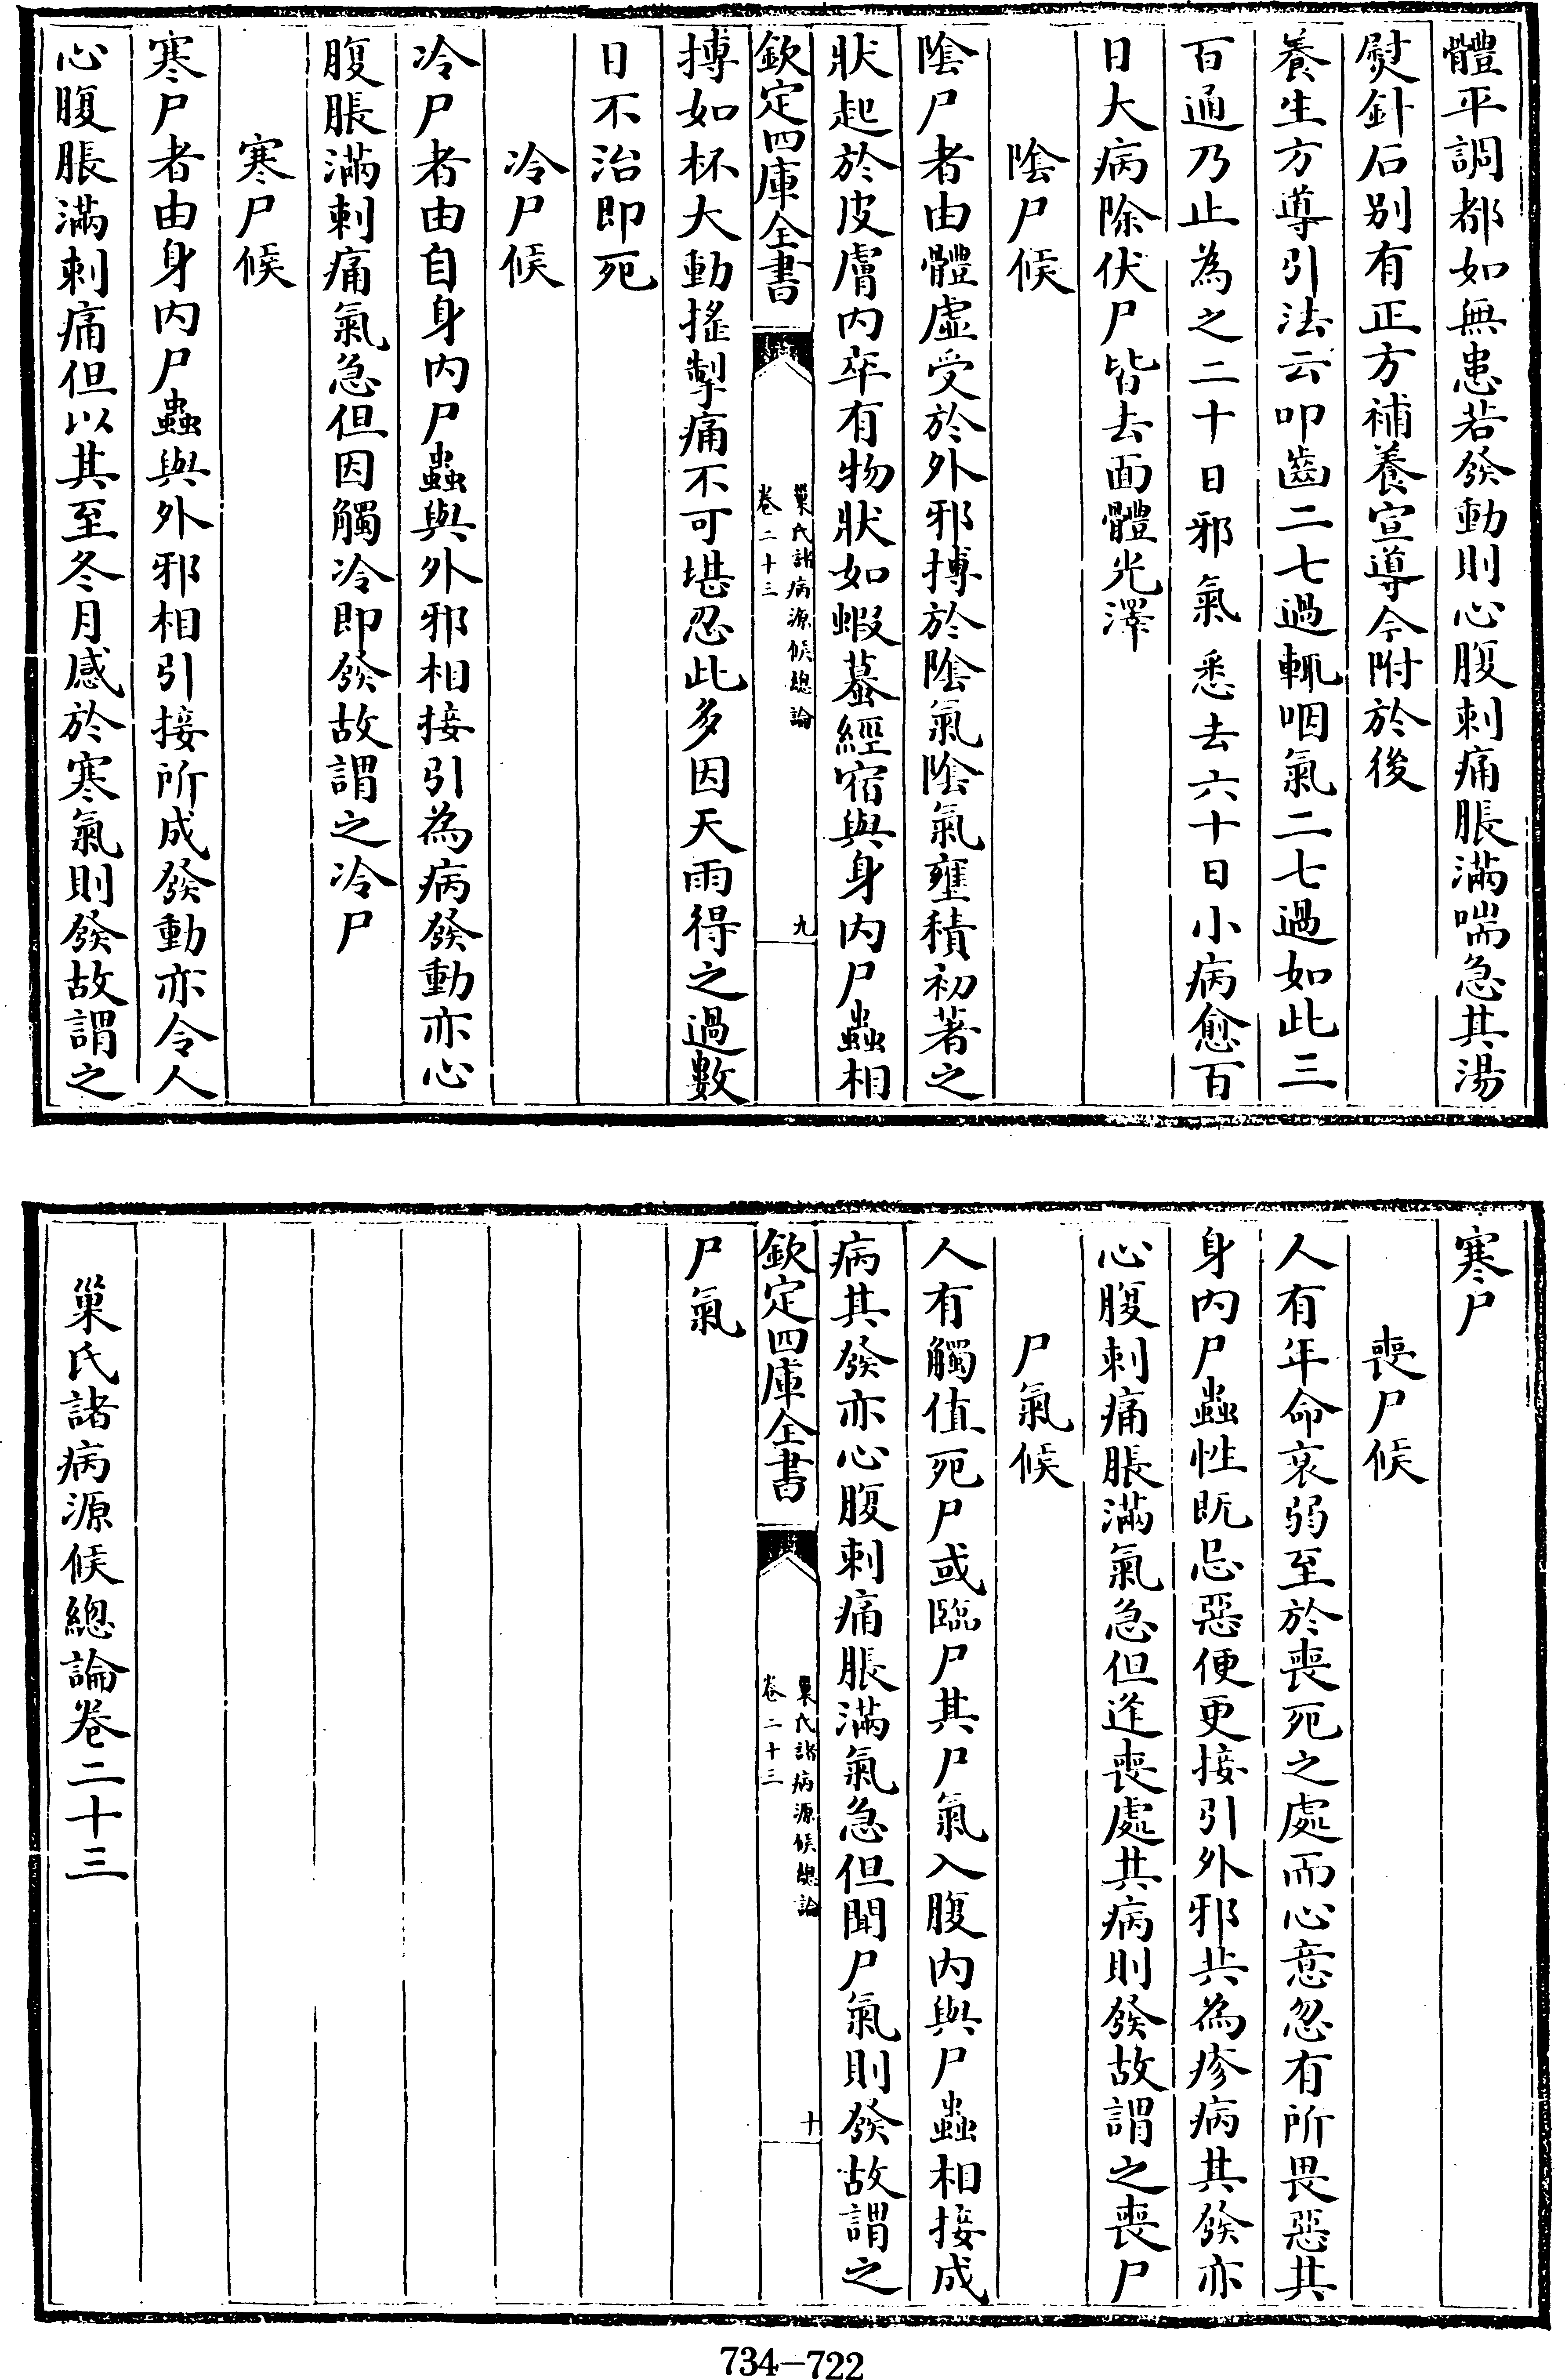 體平調都如無患若發動則心腹刺痛脹滿喘急其湯
熨針石别有正方補養宣導今附於後
養生方導引法云叩齒二七過輒咽氣二七過如此三
百通乃止為之二十日邪氣悉去六十日小病愈百
日大病除伏尸皆去面體光澤
陰尸候
陰尸者由體虛受於外邪搏於陰氣陰氣壅積初著之
狀起於皮膚内卒有物狀如蝦蟇經宿與身内尸蟲相
欽定四庫全書
巢氏諸病源候總論
卷二十三
九
搏如杯大動搖掣痛不可堪忍此多因天雨得之過數
日不治即死
冷尸候
冷尸者由自身内尸蟲與外邪相接引為病發動亦心
腹脹滿刺痛氣急但因觸冷即發故謂之冷尸
寒尸候
寒尸者由身内尸蟲與外邪相引接所成發動亦令人
心腹脹滿刺痛但以其至冬月感於寒氣則發故謂之
寒尸
喪尸候
人有年命衰弱至於喪死之處而心意忽有所畏惡其
身内尸蟲性既忌惡便更接引外邪共為疹病其發亦
心腹刺痛脹滿氣急但逢喪處其病則發故謂之喪尸
尸氣候
人有觸值死尸或臨尸其尸氣入腹内與尸蟲相接成
病其發亦心腹刺痛脹滿氣急但聞尸氣則發故謂之
欽定四庫全書
巢氏諸病源候總論
卷二十三
十
尸氣
巢氏諸病源候總論卷二十三
734-722